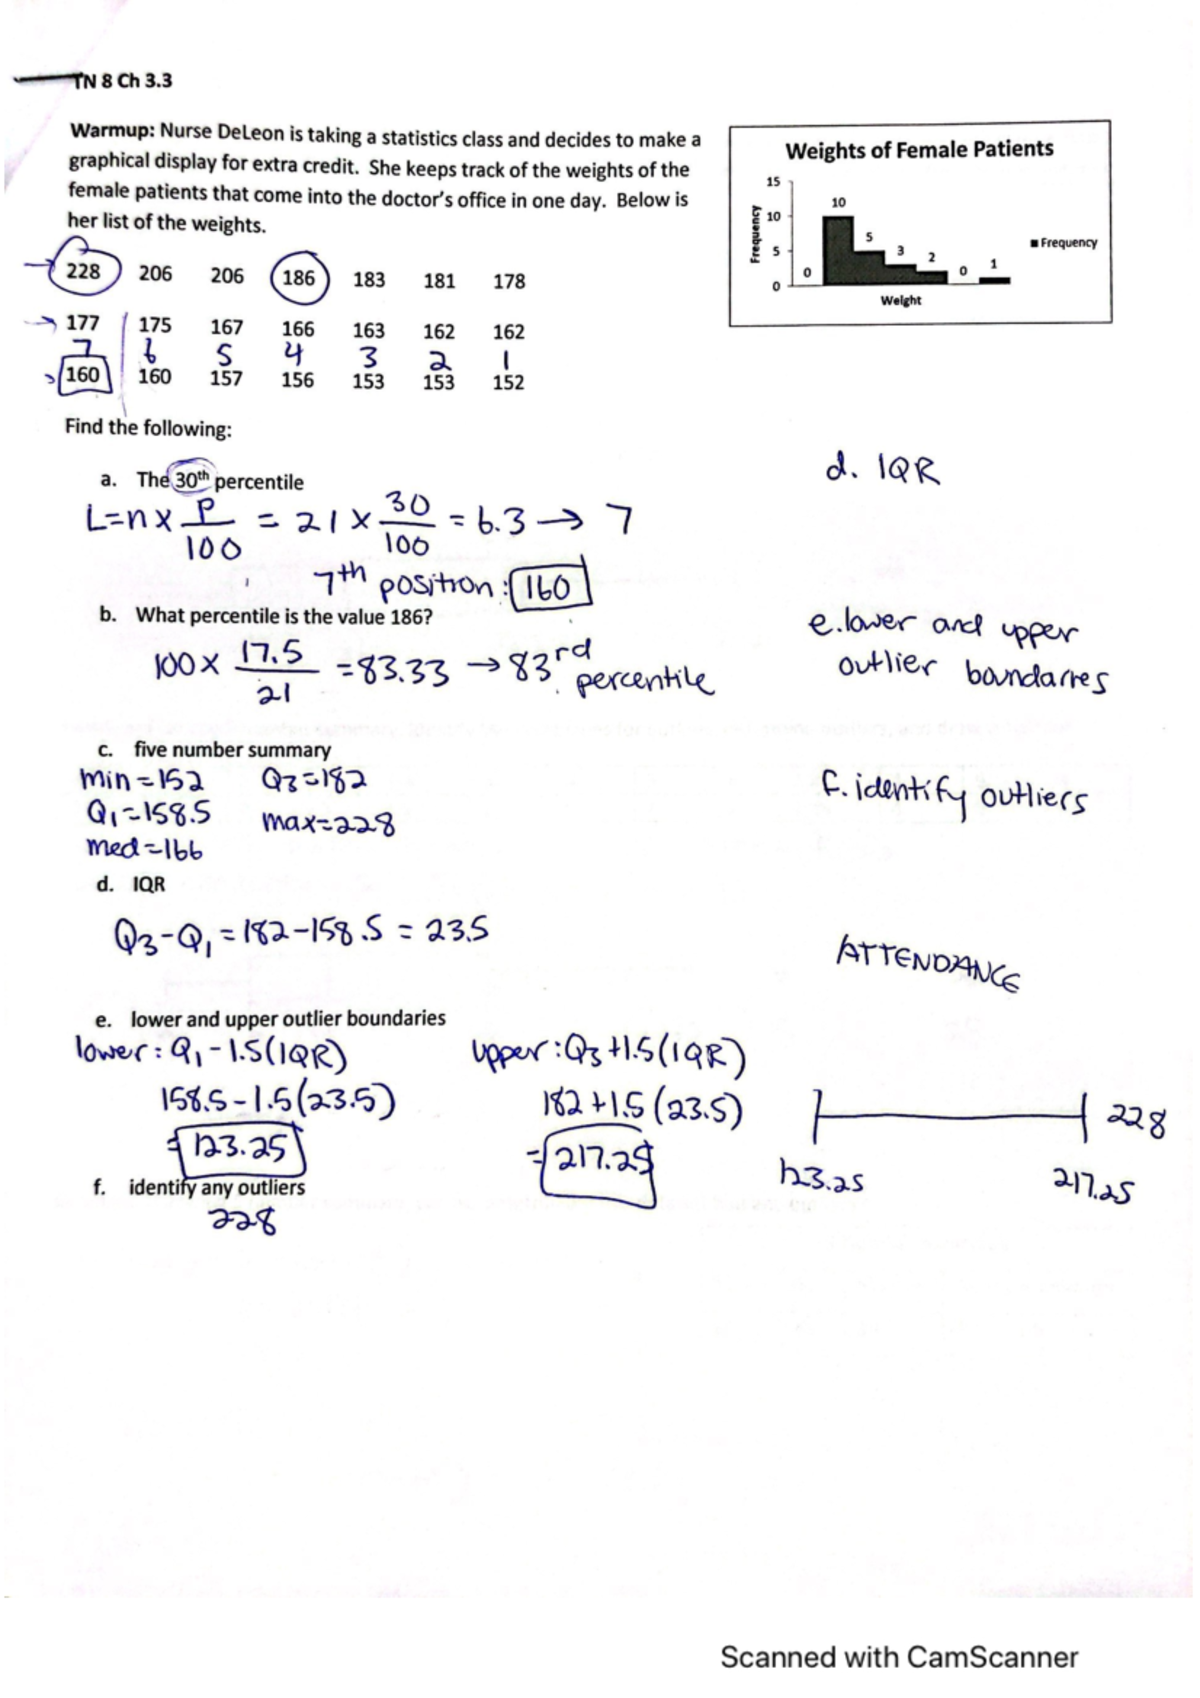 TN 8 Ch 3.3
Warmup: Nurse DeLeon is taking a statistics class and decides to make a
graphical display for extra credit. She keeps track of the weights of the
female patients that come into the doctor's office in one day. Below is
her list of the weights.
Weights of Female Patients
15
10
5
0
Frequency
0 10 5 3 2 0 1
Frequency
Weight
228 206 206 186 183 181 178
177 175 167 166 163 162 162
7 6 5 4 3 2 1
160 160 157 156 153 153 152
Find the following:
a. The 30th percentile
L=n x P/100 = 21 x 30/100 = 6.3 → 7
7th position: 160
d. IQR
b. What percentile is the value 186?
100 x 17.5/21 = 83.33 → 83rd percentile
e. lower and upper
outlier boundarres
c. five number summary
min = 152 Q3 = 182
Q1 = 158.5 max = 228
med = 166
f. identify outliers
d. IQR
Q3 - Q1 = 182 - 158.5 = 23.5
ATTENDANCE
e. lower and upper outlier boundaries
lower: Q1 - 1.5(IQR) upper: Q3 + 1.5(IQR)
158.5 - 1.5(23.5) 182 + 1.5(23.5)
= 123.25 = 217.25
228
123.25 217.25
f. identify any outliers
228
Scanned with CamScanner